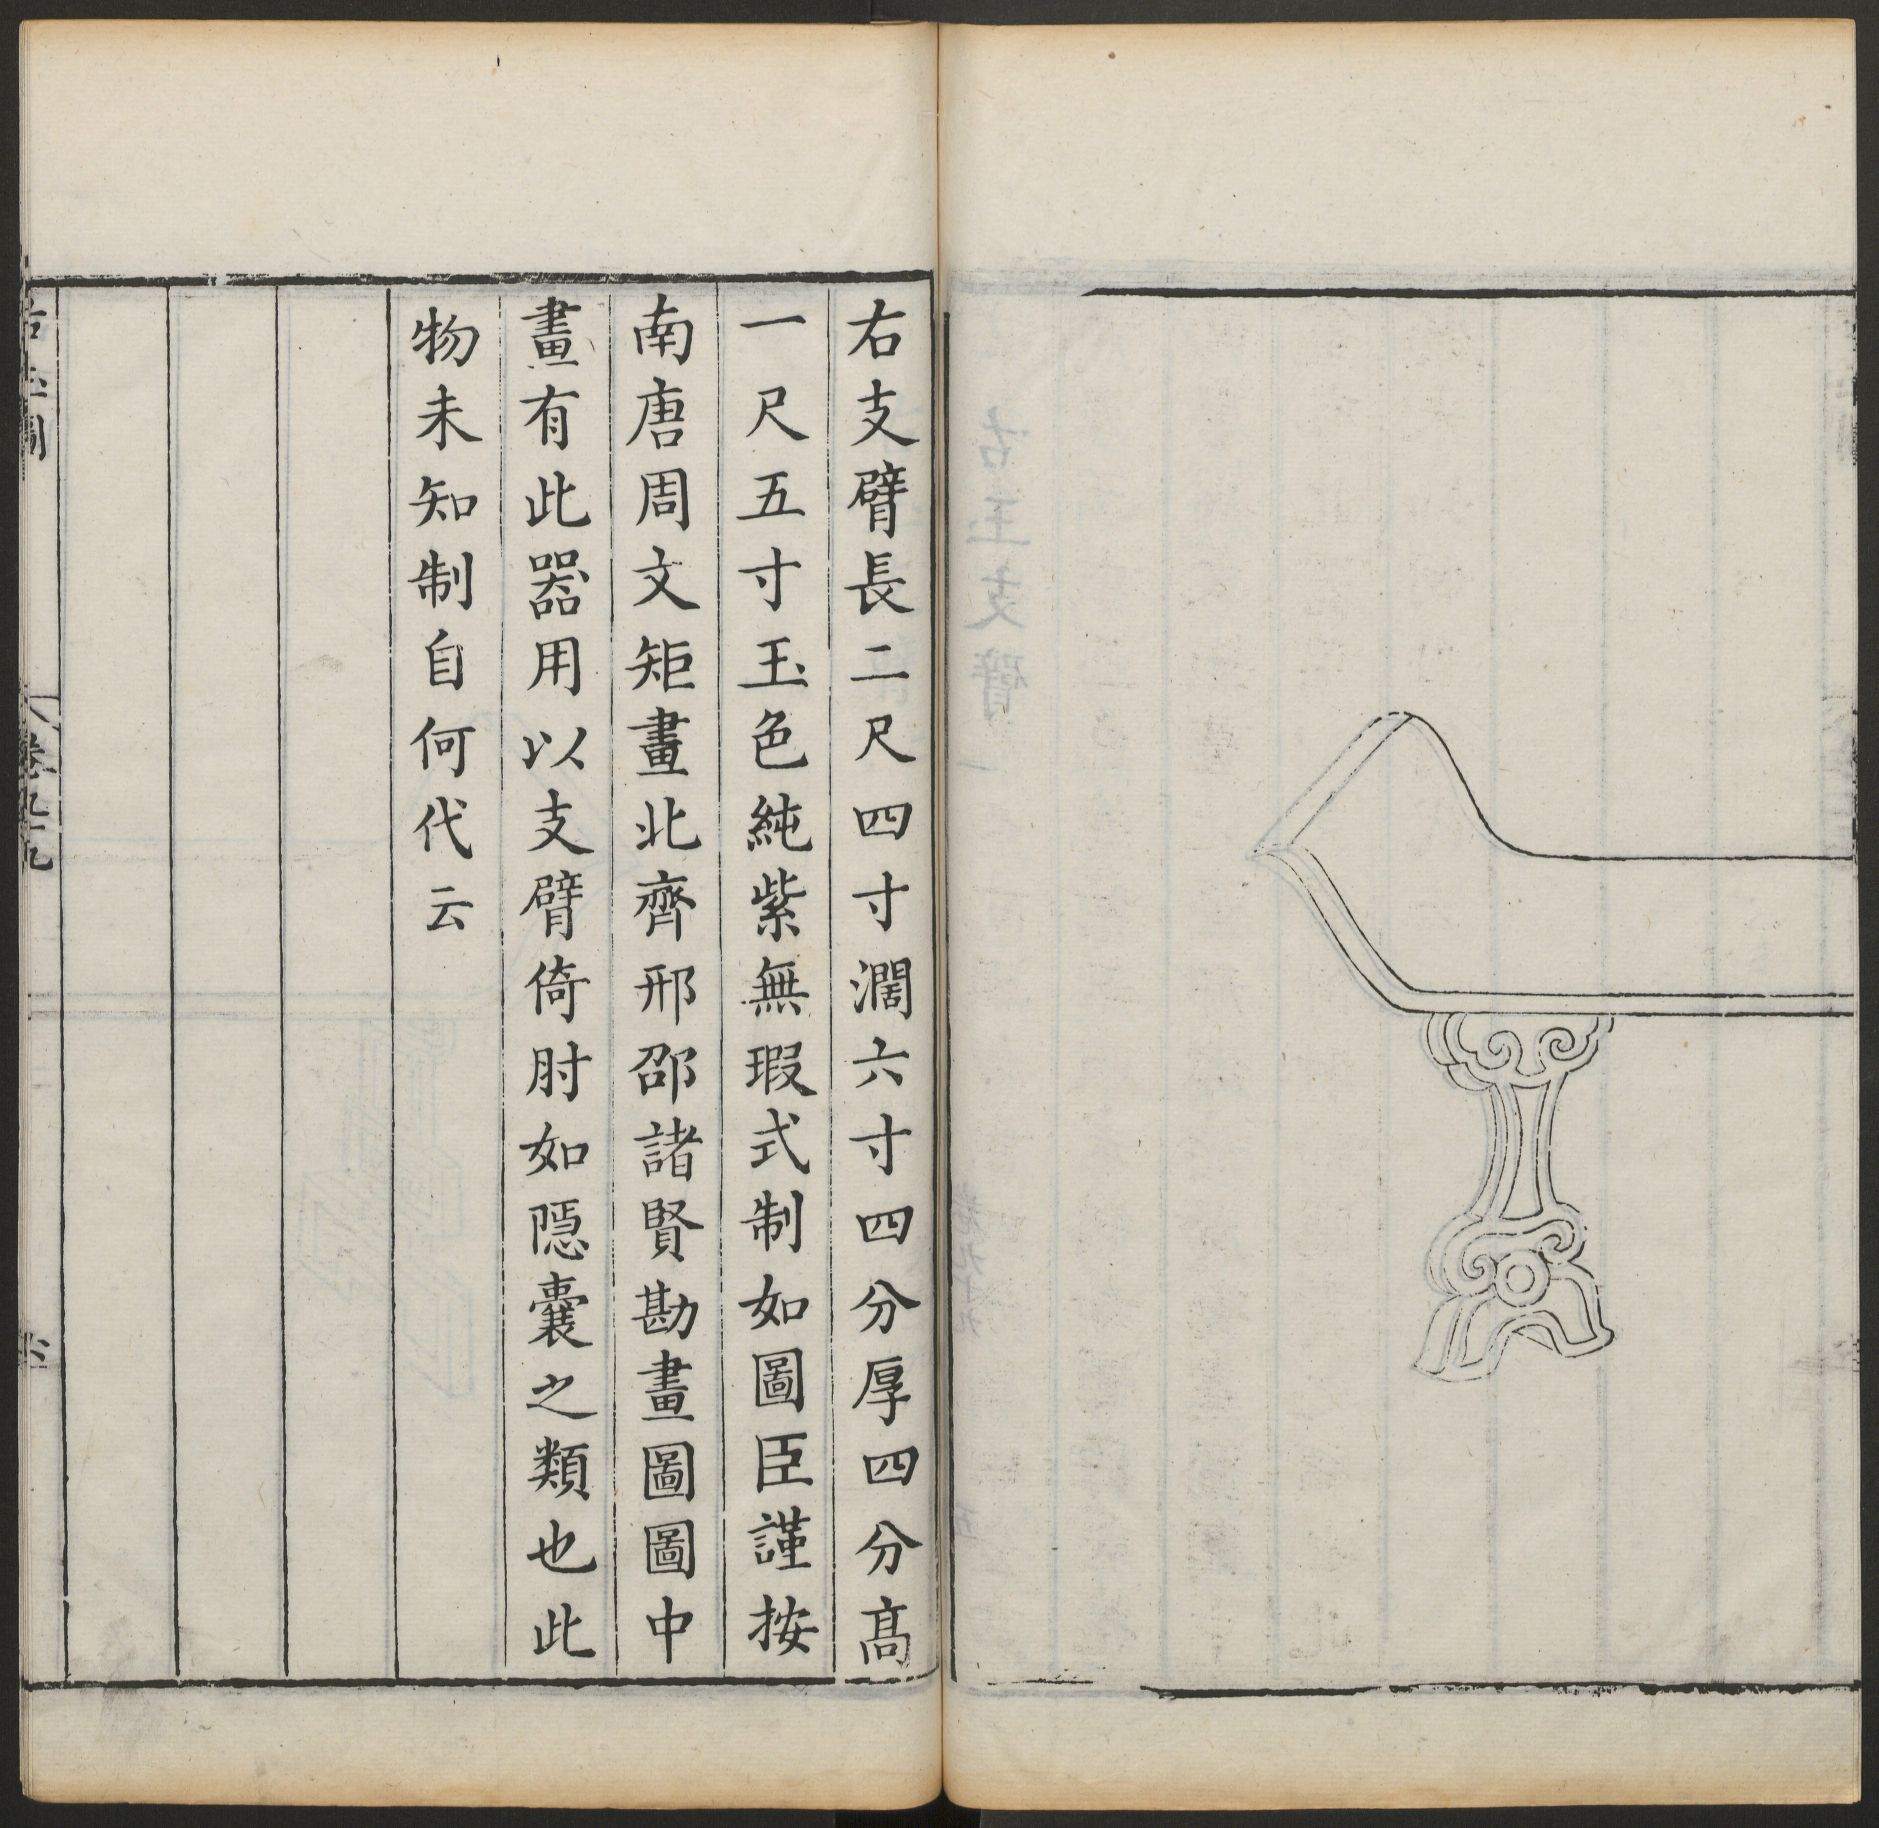 右支臂長二尺四寸濶六寸四分厚四分髙
一尺五寸玉色純紫無瑕式制如圖臣謹按
南唐周文矩畫北齊邢邵諸賢勘畫圖圖中
畫有此器用以支臂倚肘如隠囊之類也此
物未知制自何代云